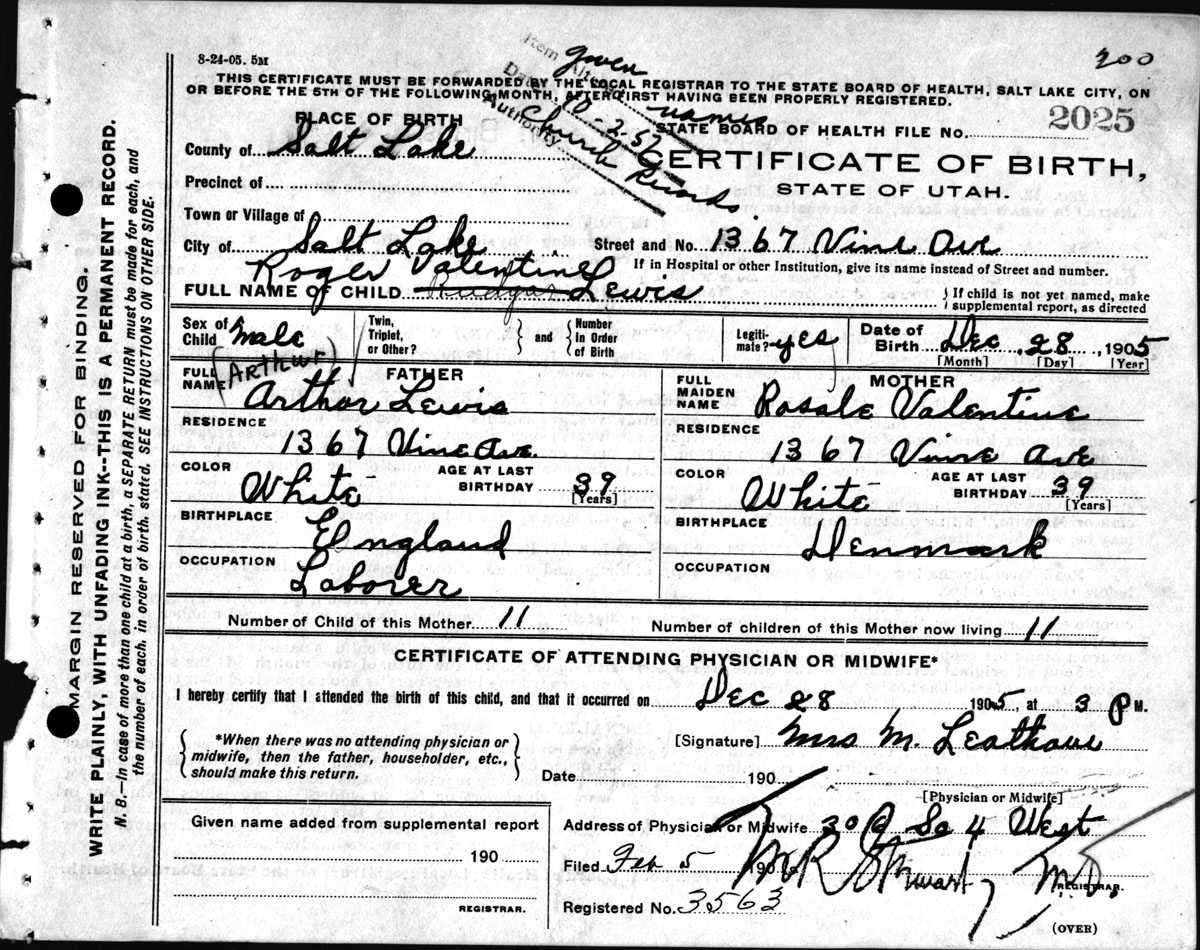 8-24-05. 5M
200
given
names
THIS CERTIFICATE MUST BE FORWARDED BY THE LOCAL REGISTRAR TO THE STATE BOARD OF HEALTH, SALT LAKE CITY, ON
OR BEFORE THE 5TH OF THE FOLLOWING MONTH, AFTER FIRST HAVING BEEN PROPERLY REGISTERED.
Item Altered
Date 10-2-57
Authority Church Records.
PLACE OF BIRTH
STATE BOARD OF HEALTH FILE NO. 2025
County of Salt Lake
CERTIFICATE OF BIRTH,
STATE OF UTAH.
Precinct of
Town or Village of
City of Salt Lake Street and No. 1367 Vine Ave
If in Hospital or other Institution, give its name instead of Street and number.
Roger Valentine
FULL NAME OF CHILD Lewis
If child is not yet named, make supplemental report, as directed
Sex of Child Male Twin, Triplet, or Other? and Number In Order of Birth Legitimate? yes Date of Birth Dec. 28, 1905
[Month] [Day] [Year]
(Arthur)
FATHER
FULL NAME Arthor Lewis
RESIDENCE
1367 Vine Ave.
COLOR White AGE AT LAST BIRTHDAY 39
[Years]
BIRTHPLACE England
OCCUPATION Laborer
MOTHER
FULL MAIDEN NAME Rosale Valentine
RESIDENCE
1367 Vine Ave
COLOR White AGE AT LAST BIRTHDAY 39
[Years]
BIRTHPLACE Denmark
OCCUPATION
Number of Child of this Mother 11 Number of children of this Mother now living 11
CERTIFICATE OF ATTENDING PHYSICIAN OR MIDWIFE*
I hereby certify that I attended the birth of this child, and that it occurred on Dec 28 1905, at 3 P M.
*When there was no attending physician or
midwife, then the father, householder, etc.,
should make this return.
[Signature] Mrs M.
Date 190
[Physician or Midwife]
Given name added from supplemental report
190
REGISTRAR.
Address of Physician or Midwife So 4 West
Filed Feb 5 1906
Stewart, M.D.
REGISTRAR.
Registered No. 3563
(OVER)
MARGIN RESERVED FOR BINDING.
WRITE PLAINLY, WITH UNFADING INK--THIS IS A PERMANENT RECORD.
N. B.—In case of more than one child at a birth, a SEPARATE RETURN must be made for each, and
the number of each, in order of birth, stated. SEE INSTRUCTIONS ON OTHER SIDE.